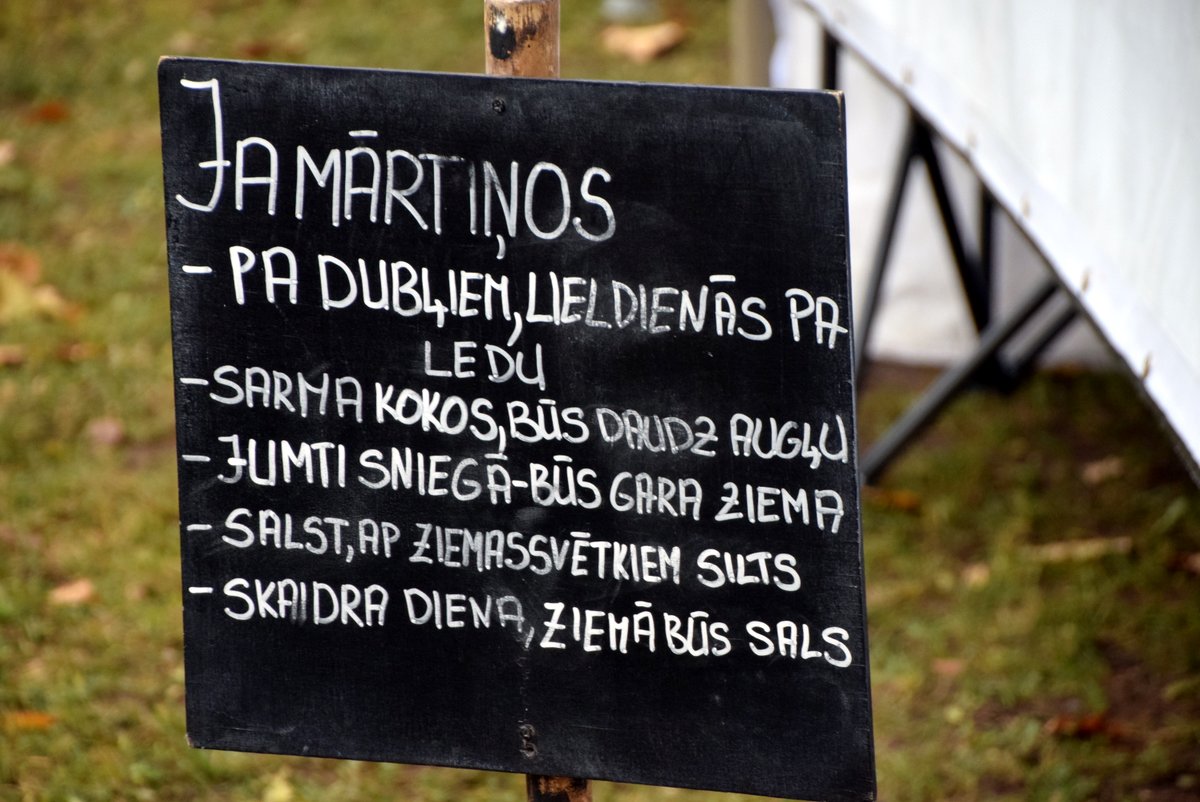 JA MĀRTIŅOS
- PA DUBĻIEM, LIELDIENĀS PA
LEDU
- SARMA KOKOS, BŪS DAUDZ AUGĻU
- JUMTI SNIEGĀ - BŪS GARA ZIEMA
- SALST, AP ZIEMASSVĒTKIEM SILTS
- SKAIDRA DIENA, ZIEMĀ BŪS SALS